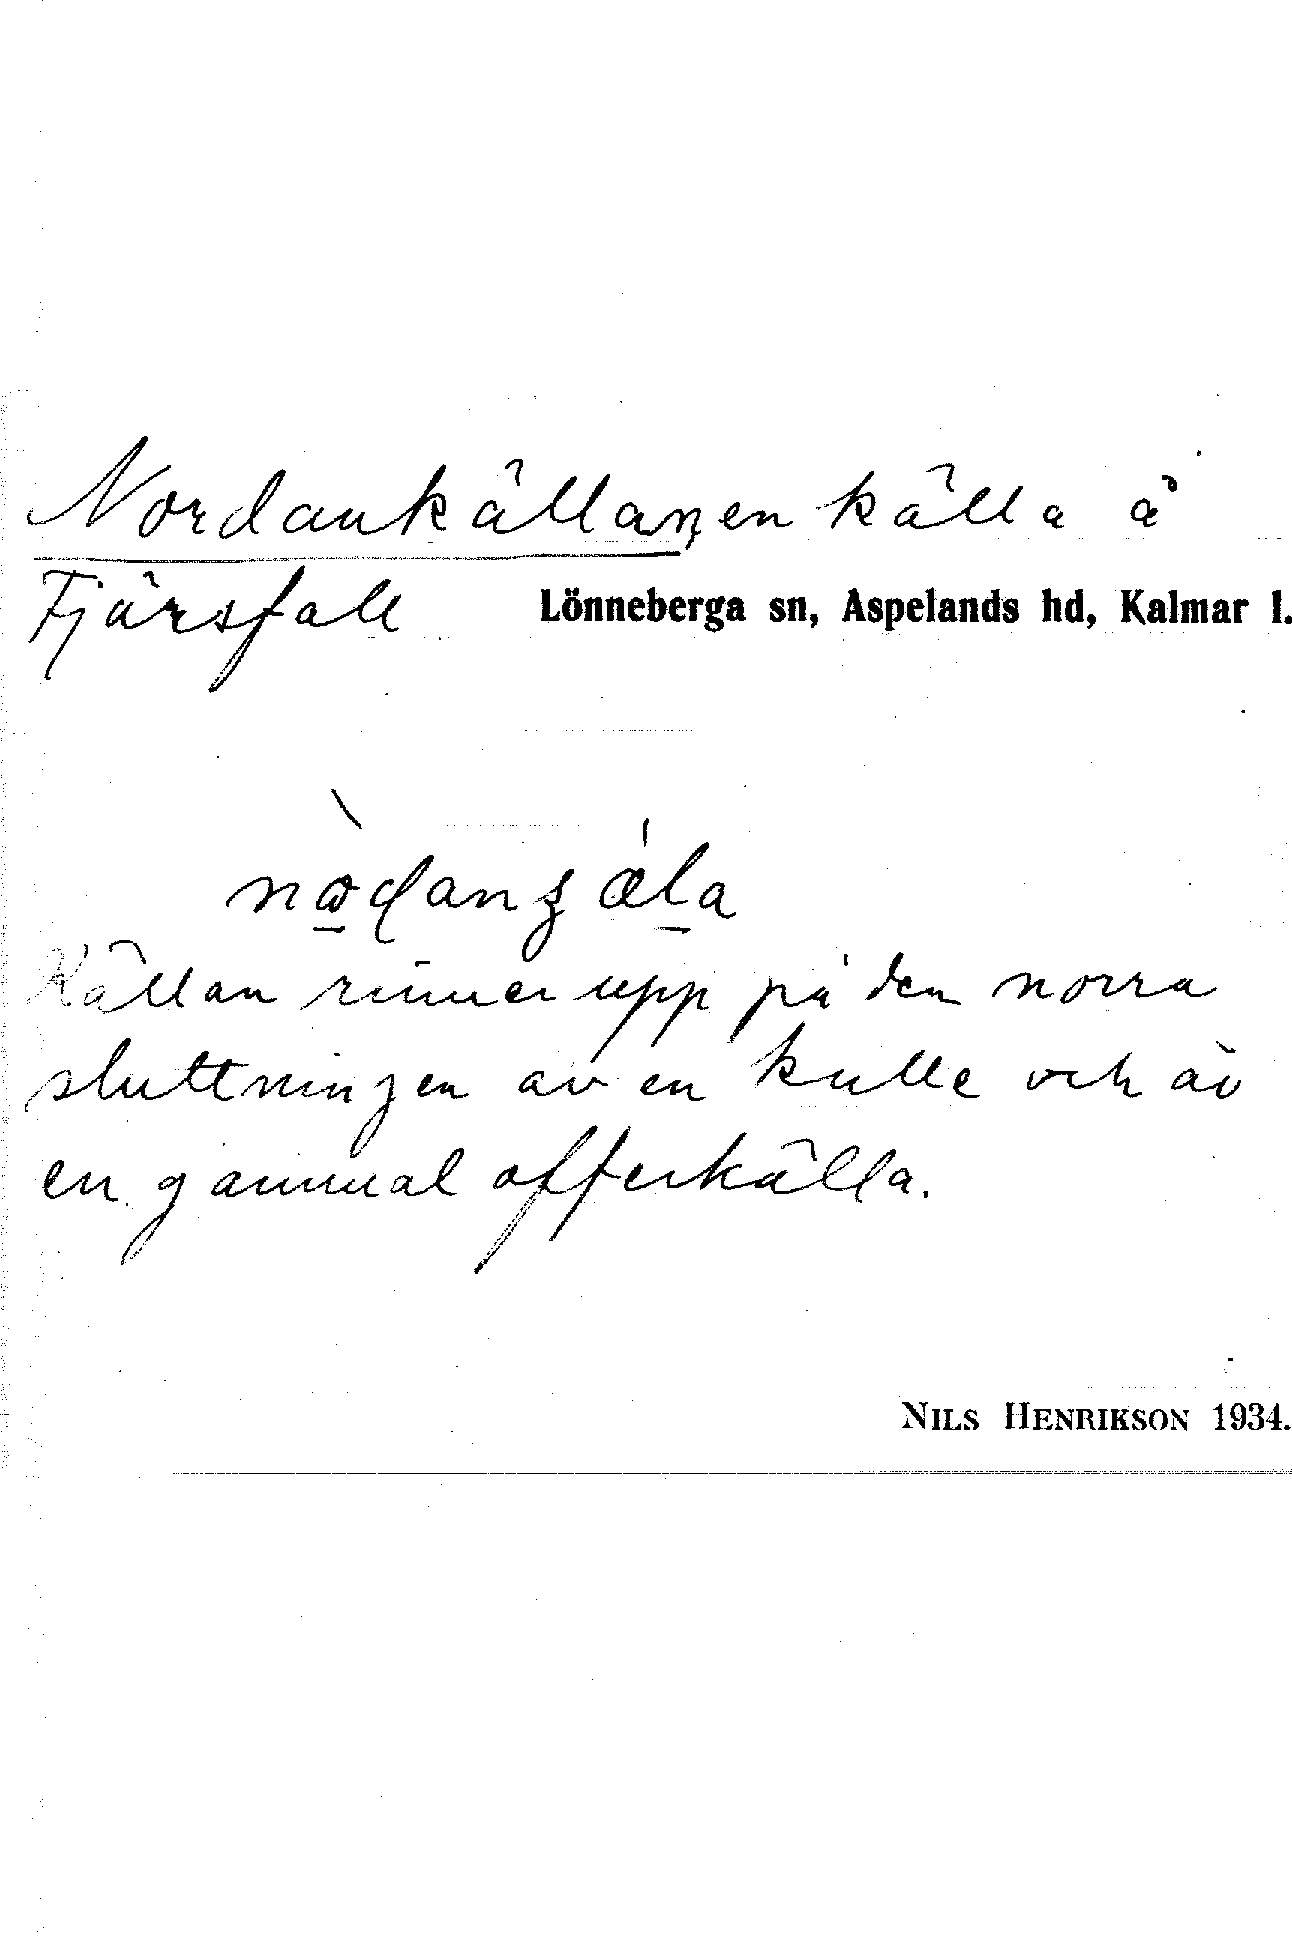 Nordankällan, en källa å
Fjärsfall Lönneberga sn, Aspelands hd, Kalmar l.
Källan rinner upp på den norra
sluttningen av en kulle och är
en gammal offerkälla.
NILS HENRIKSON 1934.